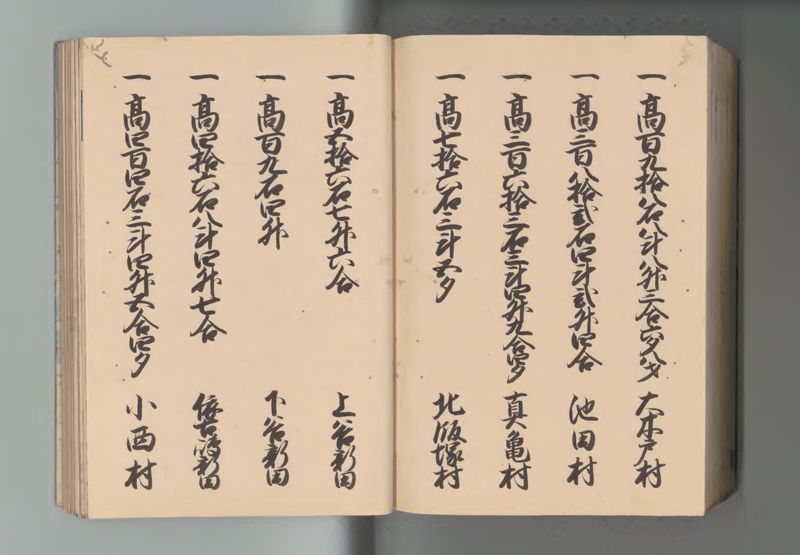 一 高百九拾八石八斗八升三合六夕八才 大木戸村
一 高三百八拾弐石四斗弐升四合 池田村
一 高三百六拾三石三斗四升九合四夕 真亀村
一 高七拾六石三斗五夕 北飯塚村
一 高五拾六石七升六合 上谷新田
一 高百九石四升 下谷新田
一 高四拾六石八斗四升七合 依古嶋新田
一 高四百四石三斗四升五合四夕 小西村